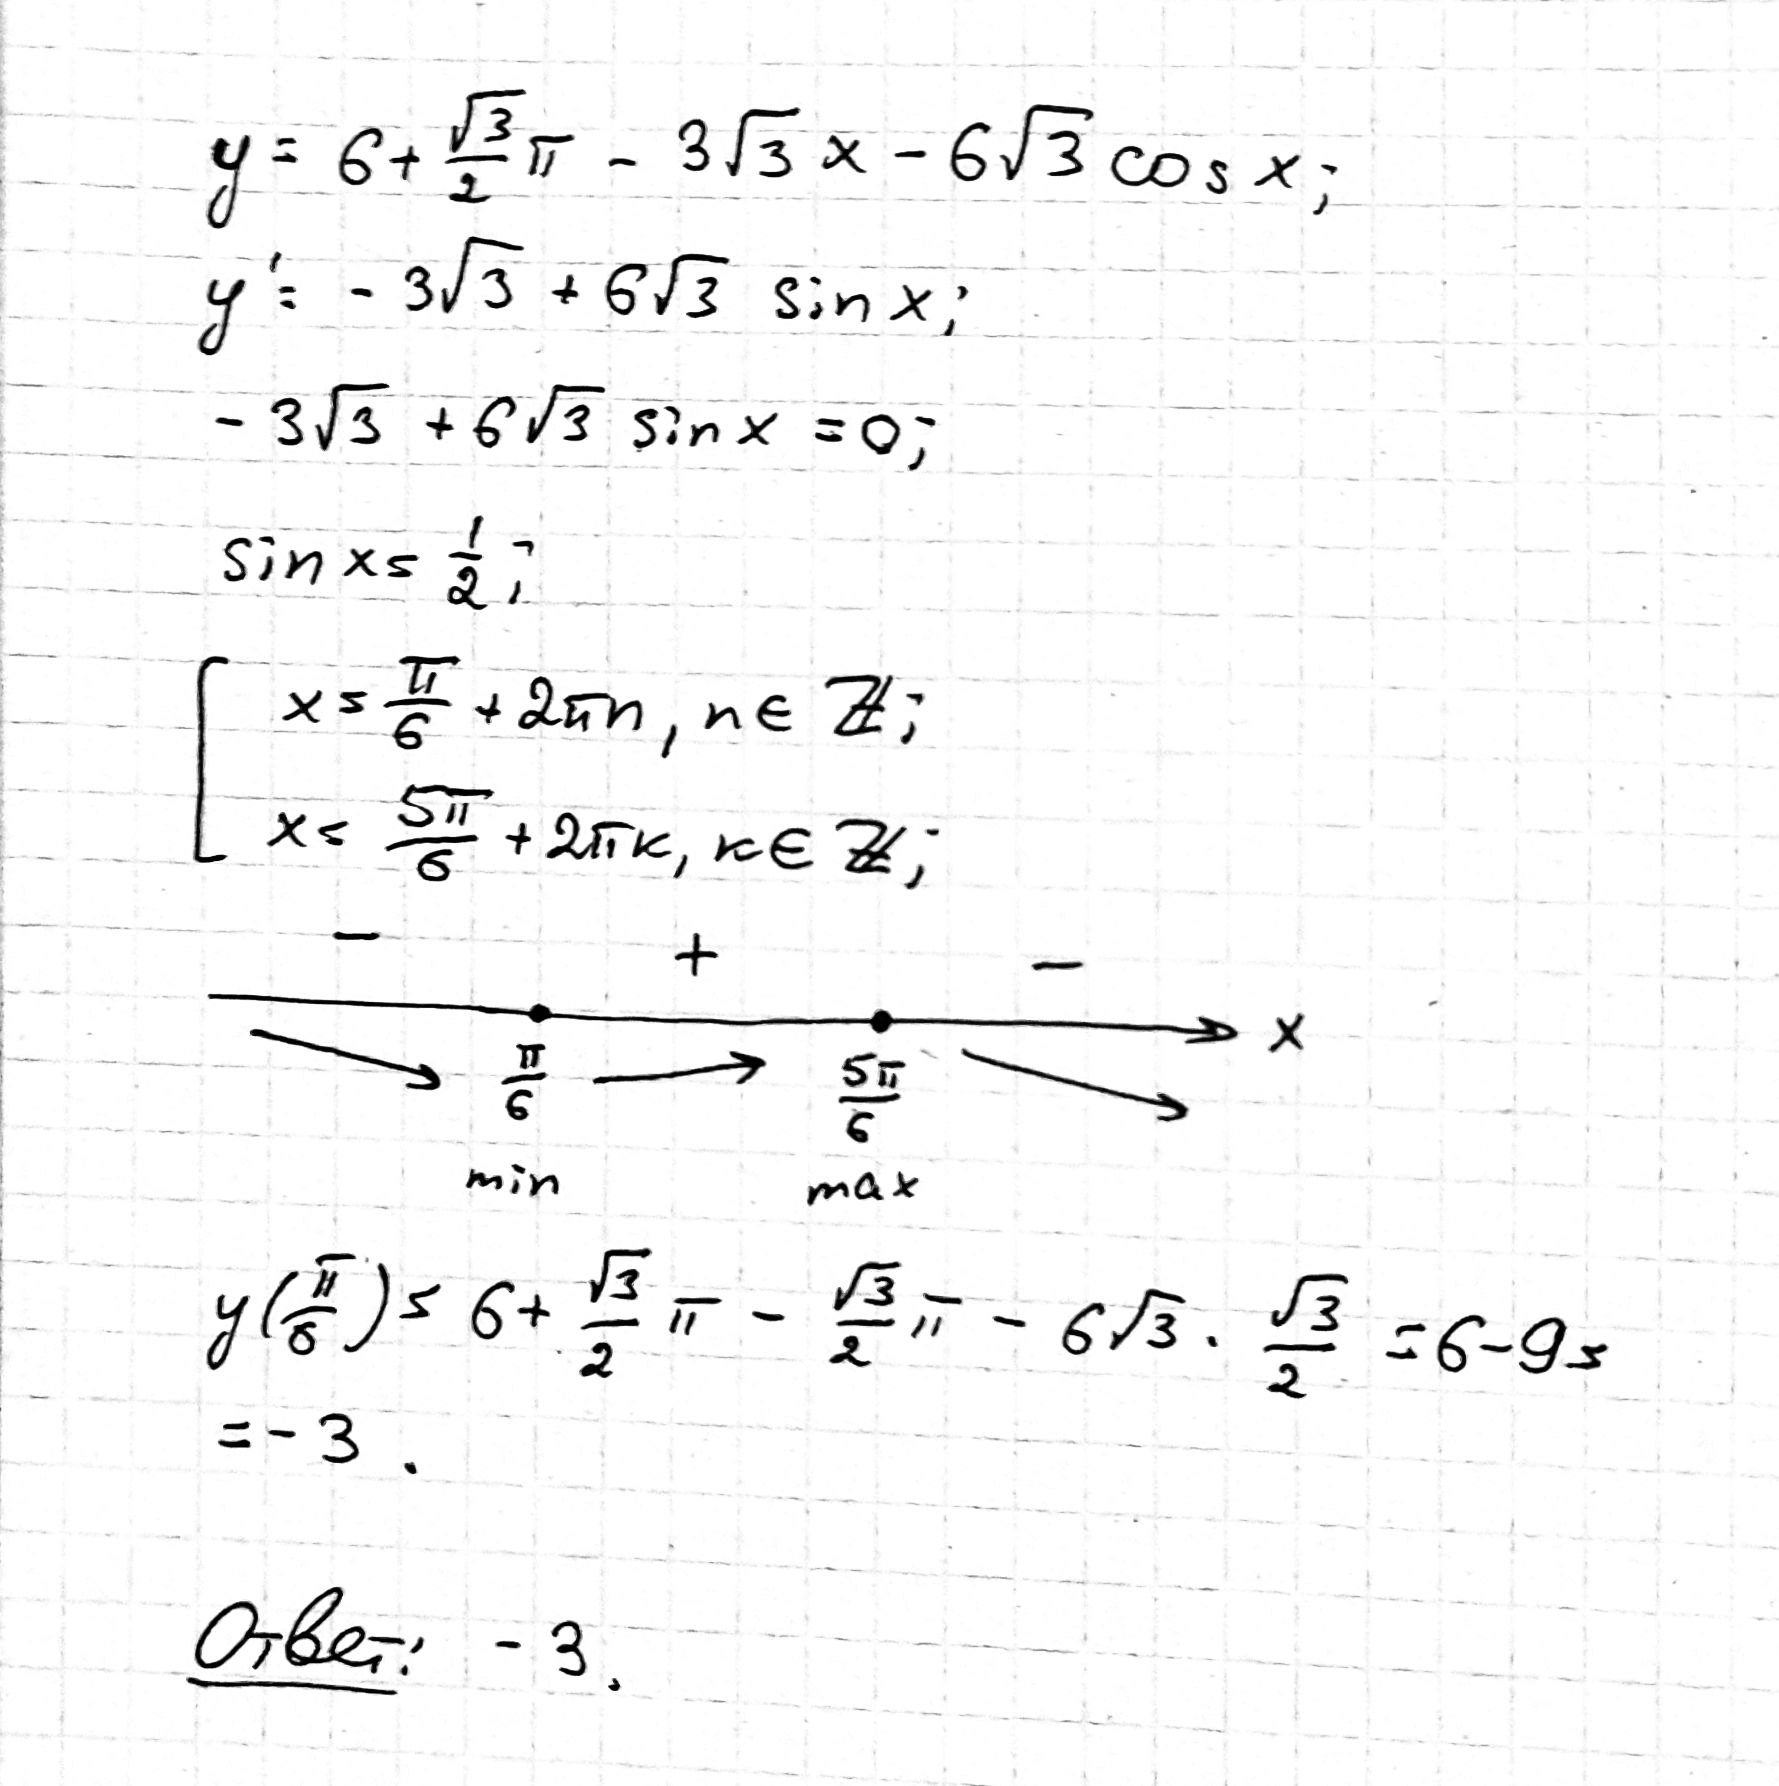 y = 6 + √3/2 π - 3√3 x - 6√3 cos x;
y' = - 3√3 + 6√3 sin x;
- 3√3 + 6√3 sin x = 0;
sin x = 1/2;
[ x = π/6 + 2πn, n ∈ ℤ;
x = 5π/6 + 2πk, k ∈ ℤ;
- + -
π/6 5π/6 x
min max
y(π/6) = 6 + √3/2 π - √3/2 π - 6√3 · √3/2 = 6 - 9 =
= - 3.
Ответ: - 3.